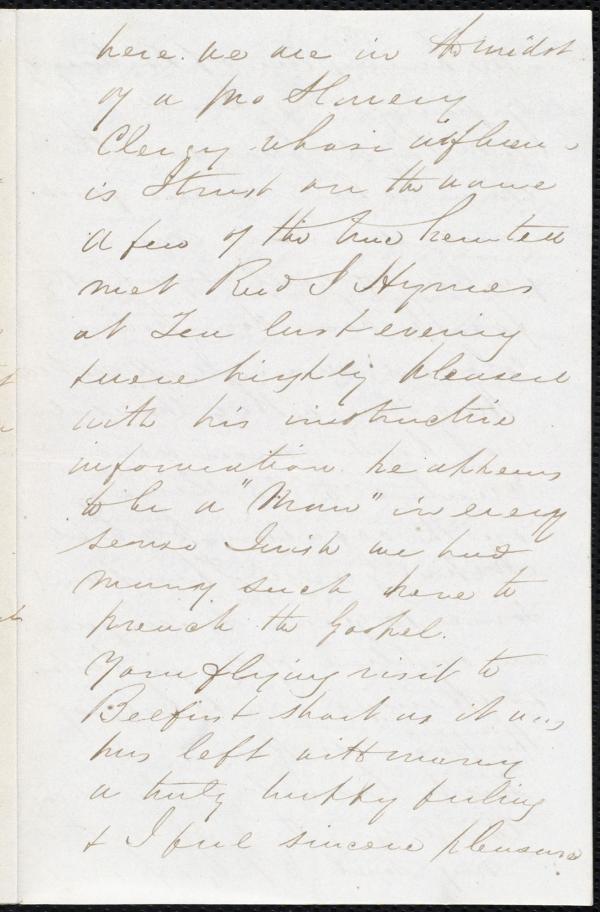 here. we are in the midst
of a pro Slavery
Clergy whose influence
is I trust on the wane
A few of the true hearted
met Revd S Hymes
at Tea last evening
& were highly pleased
with his instructive
information he appears
to be a "Man" in every
sense I wish we had
many such here to
preach the Gospel.
Your flying visit to
Belfast short as it was
has left with many
a truly happy feeling
& I feel sincere pleasure